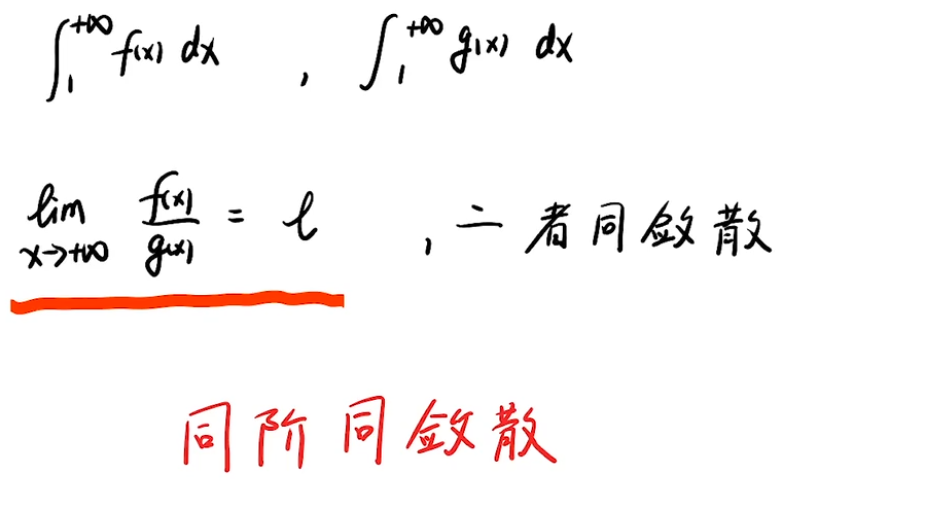 ∫₁^{+∞} f(x) dx , ∫₁^{+∞} g(x) dx
lim_{x→+∞} f(x)/g(x) = l , 二者同敛散
同阶同敛散